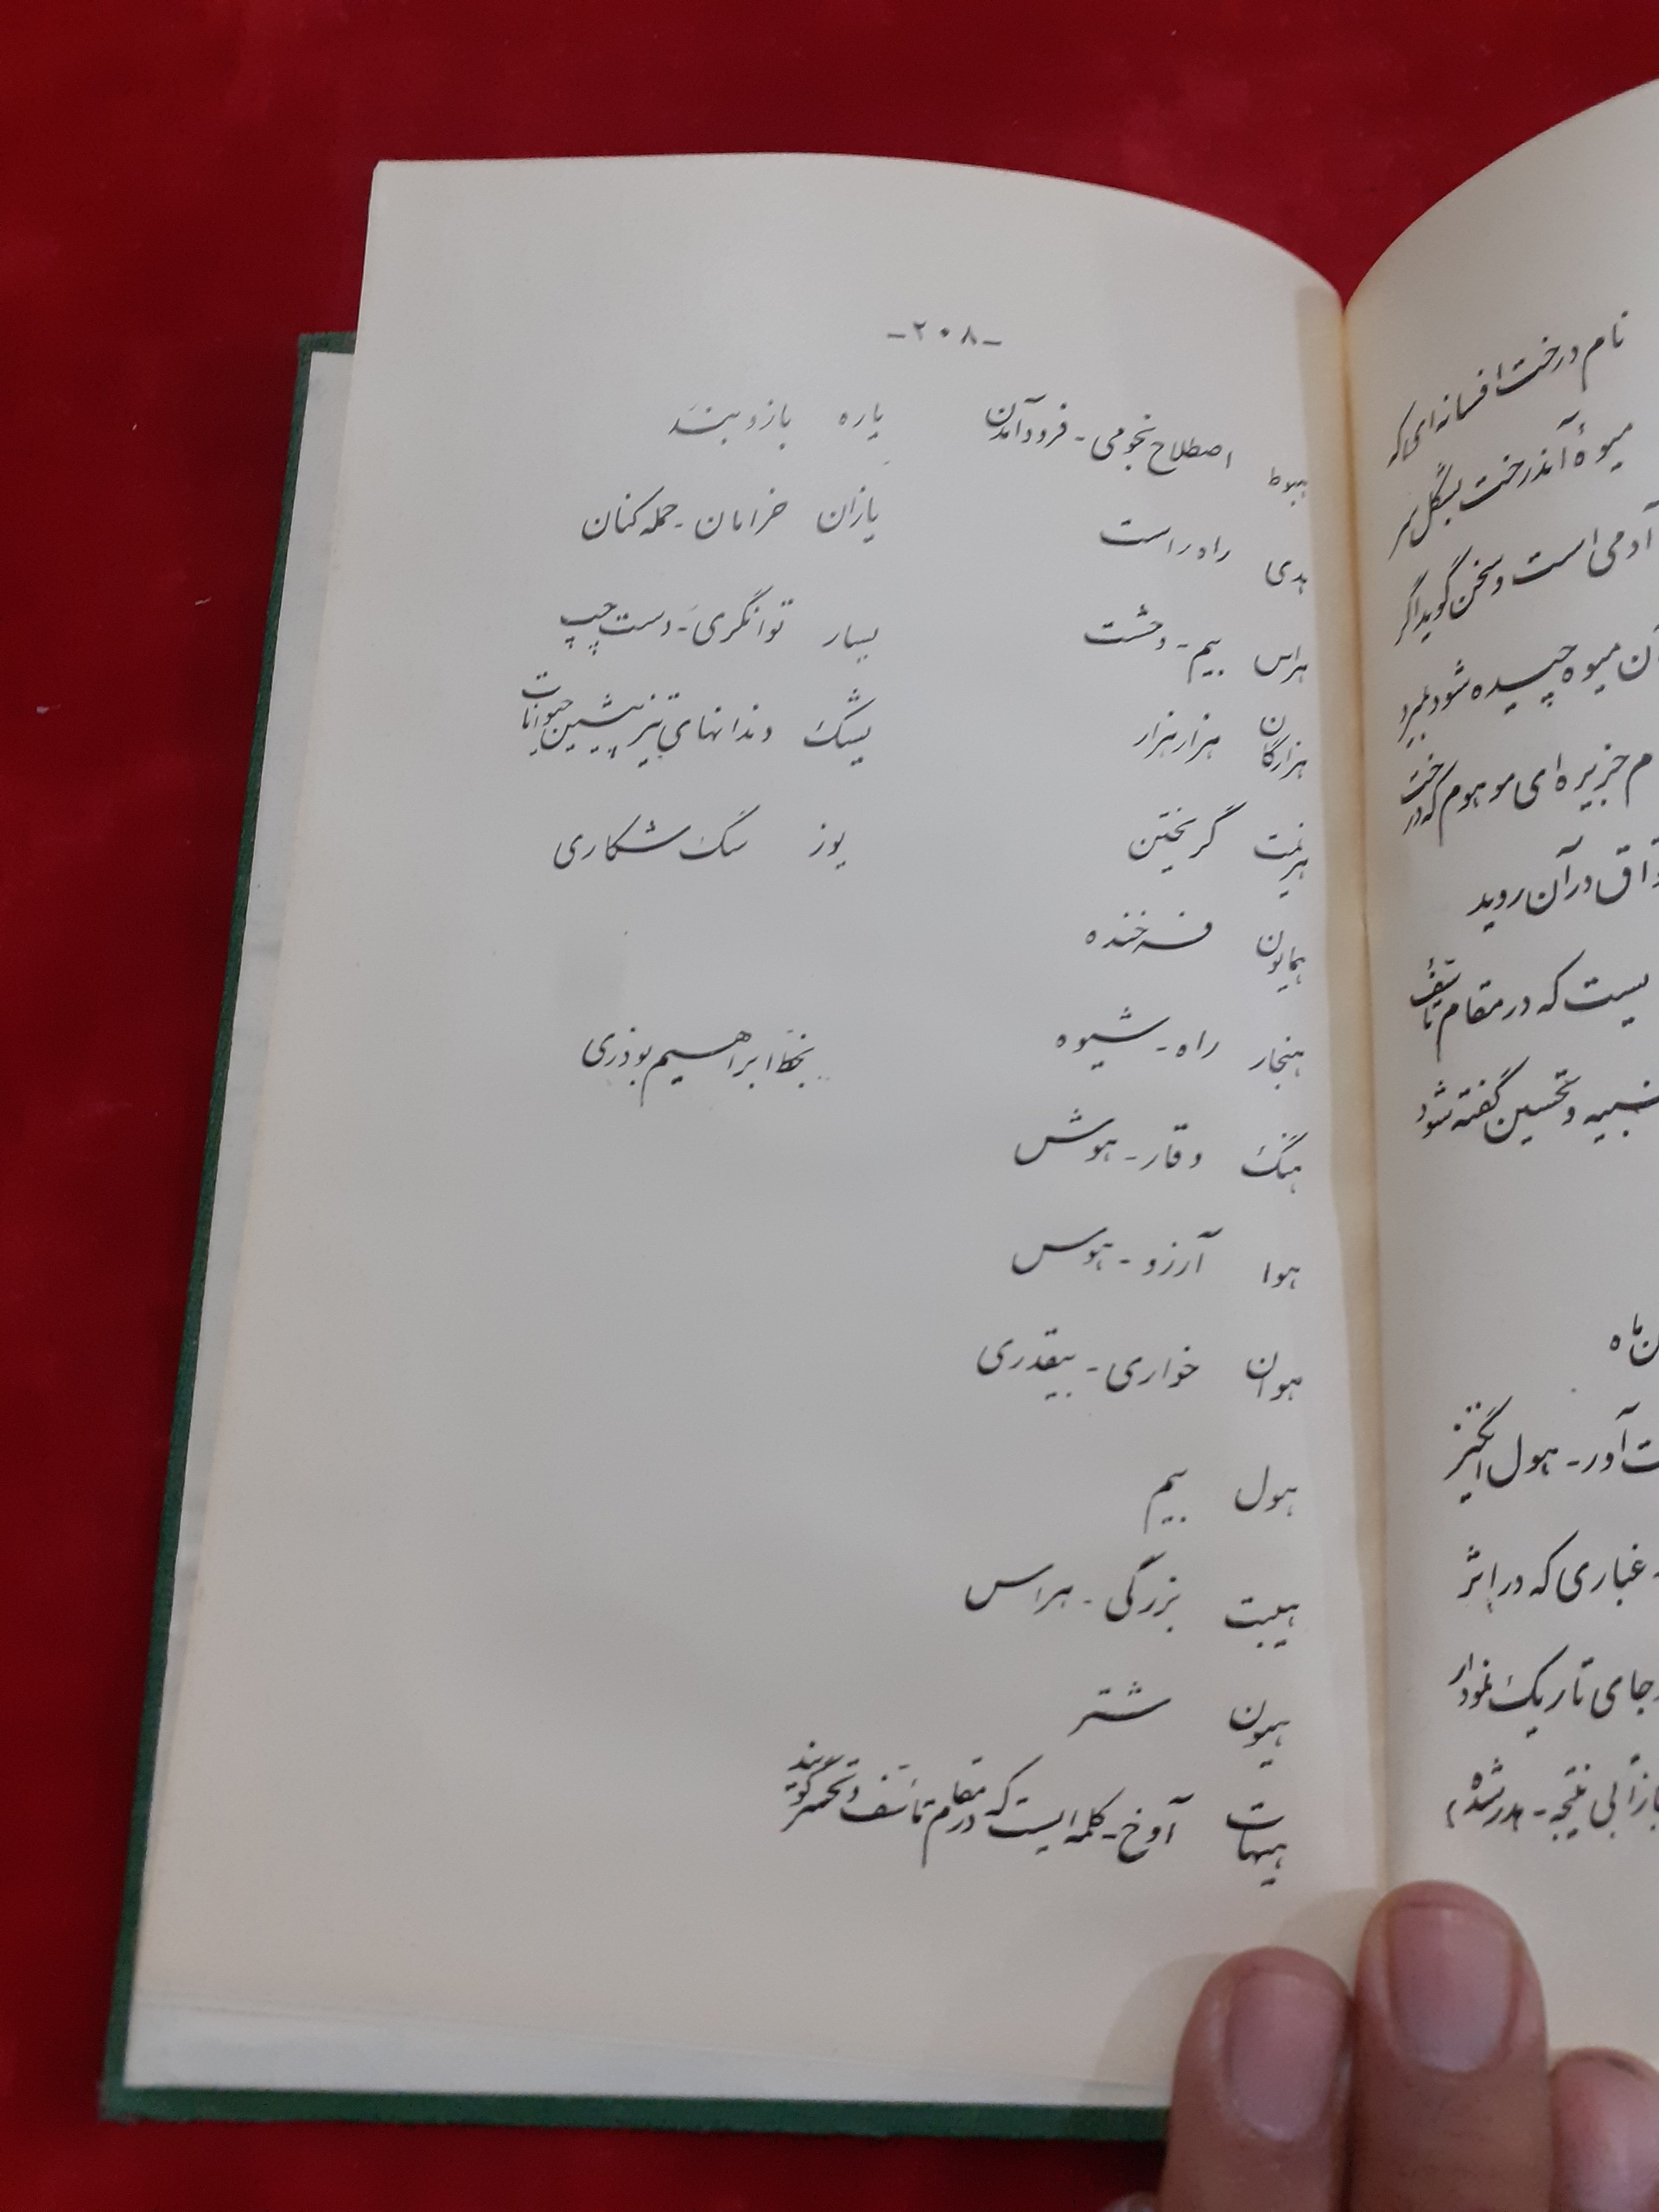 -۲۰۸-
هبوط اصطلاح نجومی - فرودآمدن
هدی راه راست
هراس بیم - وحشت
هزارگان هزار هزار
هزیمت گریختن
همایون فرخنده
هنجار راه - شیوه
هنگ وقار - هوش
هوا آرزو - هوس
هوان خواری - بیقدری
هول بیم
هیبت بزرگی - هراس
هیون شتر
هیهات آوخ - کلمه ایست که در مقام تأسف و تحسر گویند
یاره بازوبند
یازان خرامان - حمله کنان
یسار توانگری - دست چپ
یشک دندانهای تیز پیشین حیوانات
یوز سگ شکاری
بخط ابراهیم بوذری
نام درخت افسانه‌ای که
میوهٔ آندرخت بشکل سر
آدمی است و سخن گوید اگر
آن میوه چیده شود بمیرد
جزیره‌ای موهوم که درخت
در آن روید
که در مقام تأسف
و تحسین گفته شود
ماه
آور - هول انگیز
غباری که در اثر
جای تاریک نمودار
بی نتیجه - هدر شده